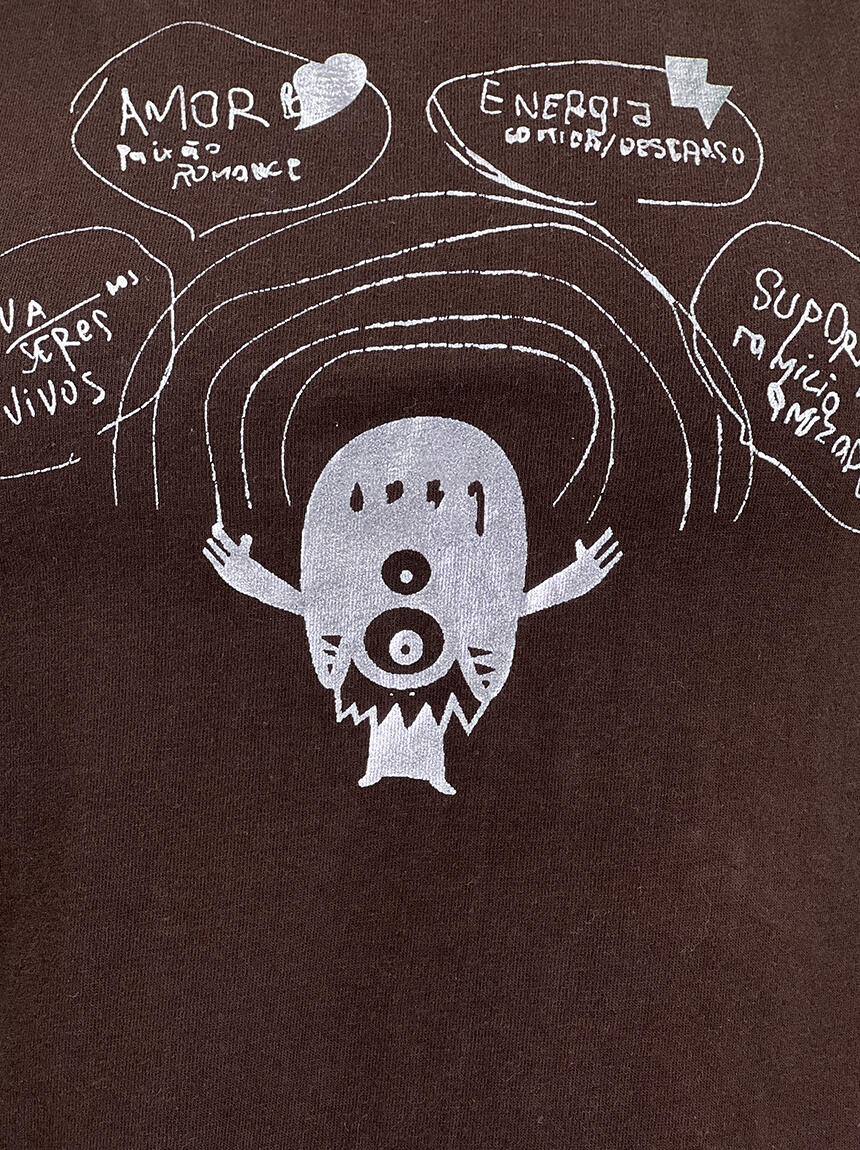 AMOR
Paixão
ROMANCE
ENERGIA
COMIDA/DESCANSO
VA
DOS
SERES
VIVOS
SUPOR
AMIZAD